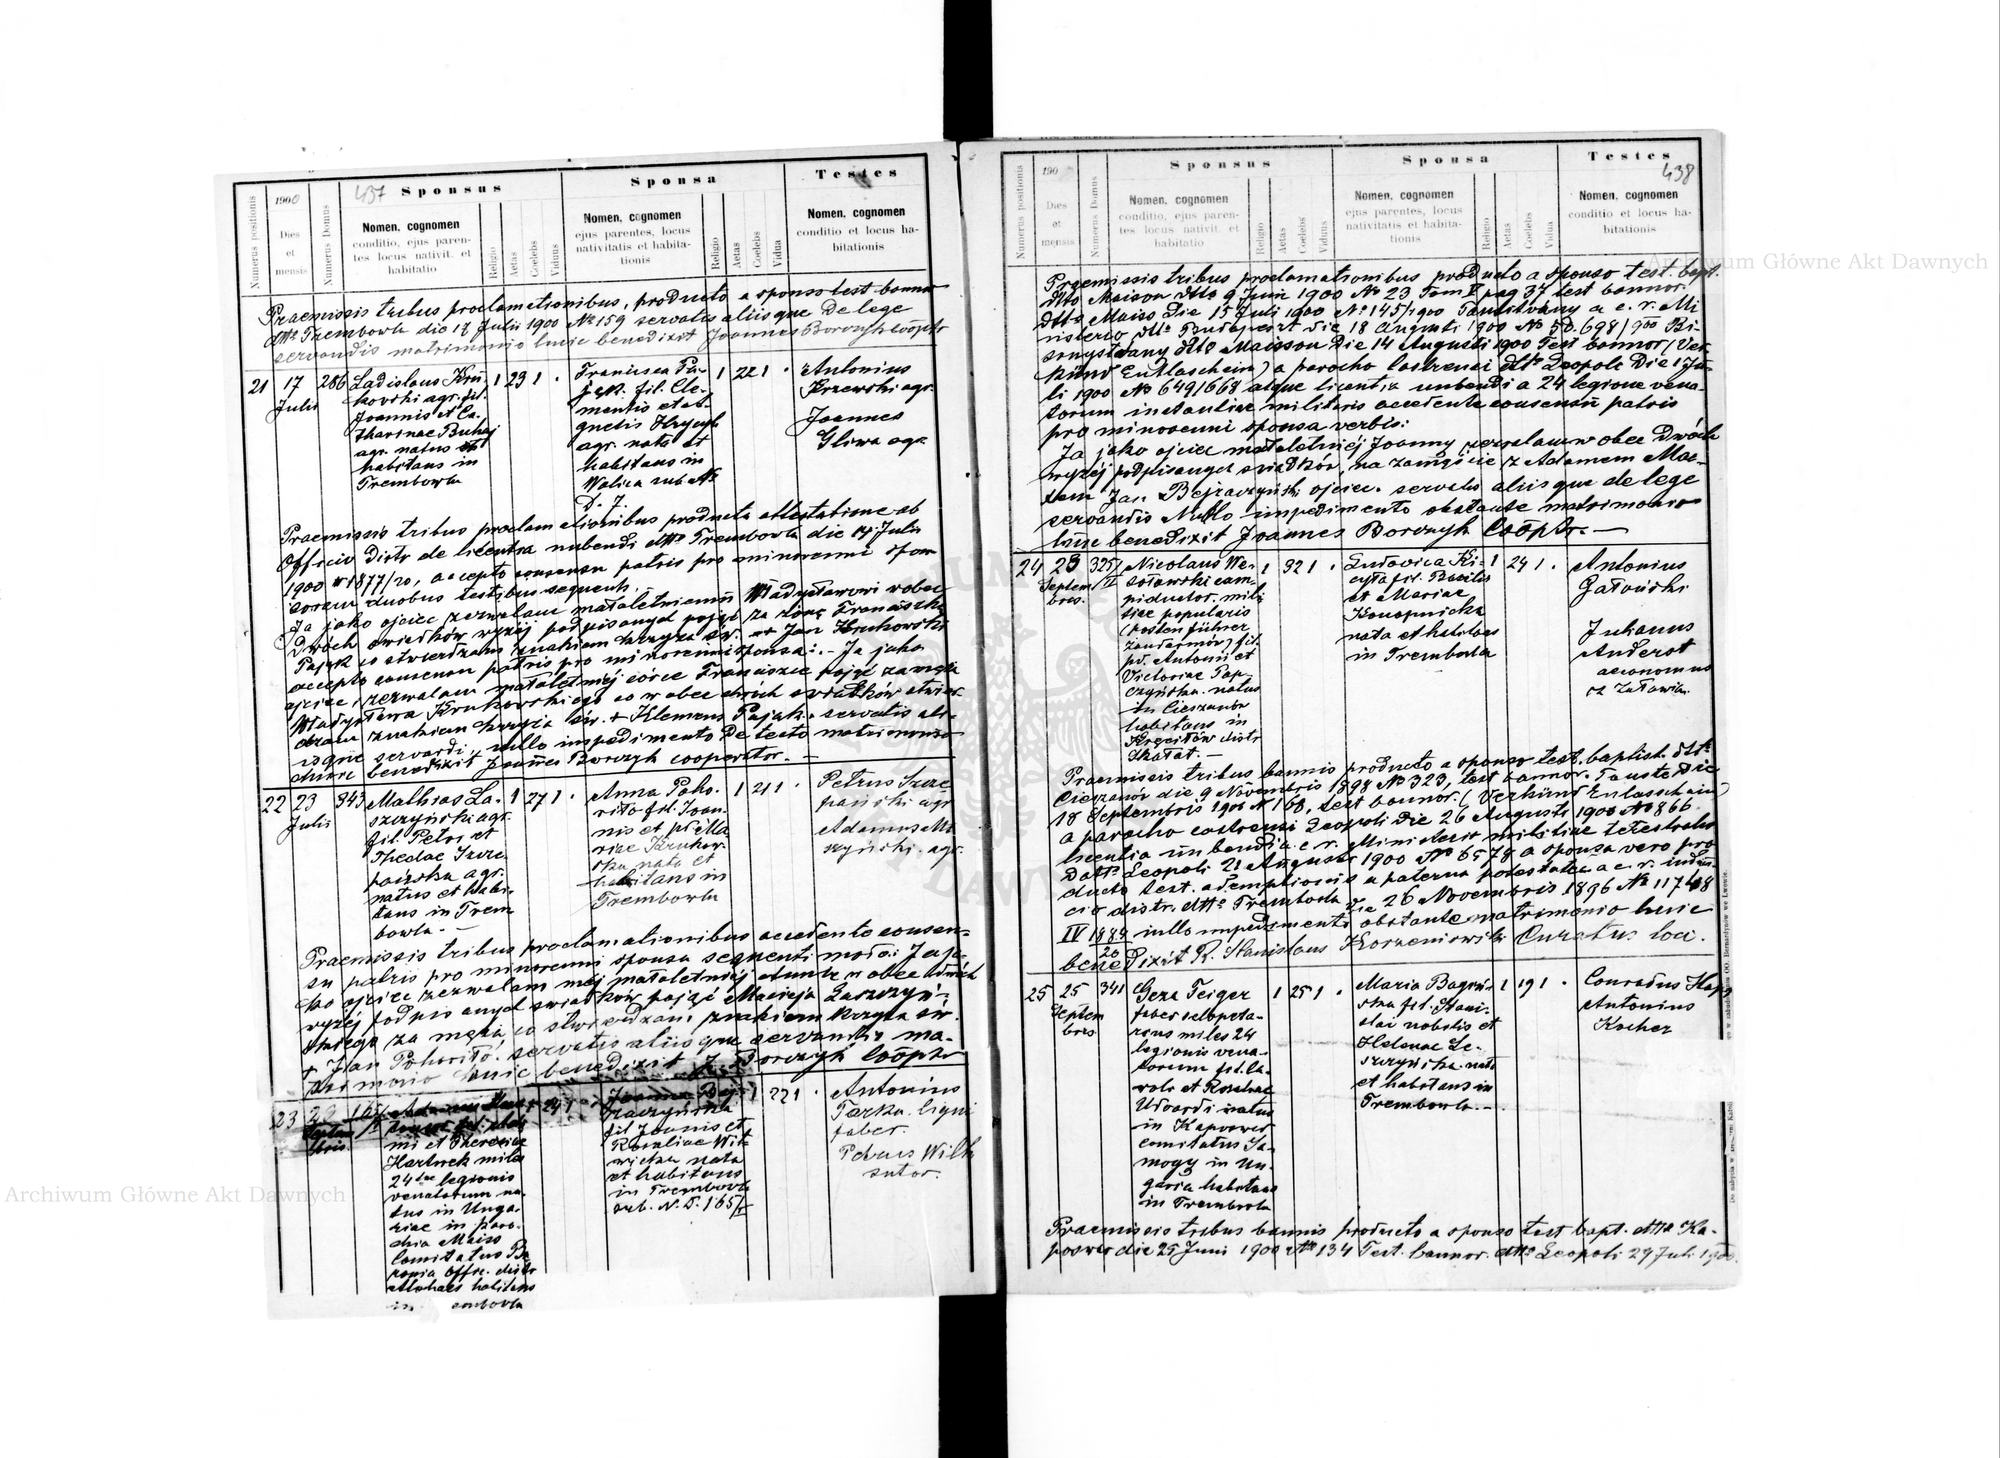 437
1900
Sponsus
Sponsa
Testes
Numerus positionis
Dies
et
mensis
Numerus Domus
Nomen, cognomen
conditio, ejus paren-
tes locus nativit. et
habitatio
Religio
Aetas
Coelebs
Viduus
Nomen, cognomen
ejus parentes, locus
nativitatis et habita-
tionis
Religio
Aetas
Coelebs
Vidua
Nomen, cognomen
conditio et locus ha-
bitationis
Praemissis tribus proclamationibus, producto a sponso test. bannor
dtto Trembowla die 17 Julii 1900 No 159 servatis aliisque de lege
servandis matrimonio hunc benedixit Joannes Borczyk Coöptr
21
17
Julii
286
Ladislaus Kru
kovski agr. fil.
Joannis et Ca-
tharinae Buhaj
agr. natus et
habitans in
Trembowla
1
23
1
Francisca Pa-
jąk fil. Cle-
mentis et A-
gnetis Hrycyk
agr. nata et
habitans in
Wolica sub No
D. 7.
1
22
1
Antonius
Krzewski agr.
Joannes
Gliwa agr.
Praemissis tribus proclamationibus producta attestatione ab
Officio Distr. de licentia nubendi dtto Trembowla die 14 Julii
1900 No 1877/20, accepto consensu patris pro minorenni spon
coram duobus testibus sequenti.
Ja jako ojciec zezwalam małoletniemu Władysławowi wobec
Dwóch świadków wyżej podpisanych pojąć za żonę Franciszkę
Pająk co stwierdzam znakiem krzyża św. + Jan Krukowski
accepto consensu patris pro minorenni sponsa: - Ja jako
ojciec, zezwalam małoletniej córce Franciszce pojąć za męża
Władysława Krukowskiego co w obec dwóch świadków stwier
dzam znakiem krzyża św. + Klemens Pająk. servatis ali-
isque servandi, nullo impedimento detecto matrimonio
hunc benedixit Joannes Borczyk cooperator. -
22
23
Julii
343
Mathias La-
szczyński agr.
fil. Petri et
Theclae Szcze
pańska agr.
natus et habi-
tans in Trem
bowla. -
1
27
1
Anna Poho-
riło fil. Joan-
nis et Ma
riae Krukow-
ska nata et
habitans in
Trembowla
1
21
1
Petrus Szcze
pański agr
Adamus
szyński. agr.
Praemissis tribus proclamationibus accedente consen-
su patris pro minorenni sponsa sequenti modo: Ja ja-
ko ojciec zezwalam mej małoletniej Annie w obec dwóch
wyżej podpisanych świadków pojąć Macieja Laszczyń-
skiego za męża, co stwierdzam znakiem krzyża św.
+ Jan Pohoriło. servatis aliisque servandis ma-
trimonio hunc benedixit J. Borczyk Coöptr
23
Septem
bris
fil. Ada
mi et Theresiae
Hartwek miles
24tae legionis
venatorum na-
tus in Unga-
riae in paro-
chia Maiss
Comitatus Ba
ronia Offic. distr
Mohacs habitans
24
1
Joanna Bej
raczyńska
fil. Joannis et
Rosaliae Wit-
wicka nata
et habitans
in Trembowla
sub. N. D. 165/I
1
22
1
Antonius
Tarka. ligni
faber.
Petrus Wilk
sutor.
438
190
Sponsus
Sponsa
Testes
Numerus positionis
Dies
et
mensis
Numerus Domus
Nomen, cognomen
conditio, ejus paren-
tes locus nativit. et
habitatio
Religio
Aetas
Coelebs
Viduus
Nomen, cognomen
ejus parentes, locus
nativitatis et habita-
tionis
Religio
Aetas
Coelebs
Vidua
Nomen, cognomen
conditio et locus ha-
bitationis
Praemissis tribus proclamationibus producto a sponso test. bapt.
dtto Maison dtto 9 Junii 1900 No 23 Tom V pag 37 test bannor.
dtto Maiss Die 15 Juli 1900 No 145/1900 Tanusítvány a c. r. Mi
nisterio dtto Budapest die 18 Augusti 1900 No 50.698/900 Bi-
zonyítvány dtto Maisson Die 14 Augusti 1900 Test bannor (Ver-
künd Entlaschein) a parocho castrensi dtto Leopoli Die 1 Ju-
li 1900 No 649/668 atque licentia nubendi a 24 legione vena-
torum militaris accedente consensu patris
pro minorenni sponsa verbis:
Ja jako ojciec małoletniéj Joanny zezwalam w obec dwóch
wyżéj podpisanych świadków, na zamęście z Adamem
Jan Bejraczyński ojciec. servatis aliisque de lege
servandis Nullo impedimento obstante matrimonio
hunc benedixit Joannes Borczyk Coöptr. -
24
23
Septem
bris.
325/II
Nicolaus We-
sołowski cam-
piductor. mili
tiae popularis
(Postenführer
żandarmów) fil.
pd. Antonii et
Victoriae Pap-
czyńska. natus
in Cieszanów
habitans in
Kręciłów distr
Skałat. -
1
32
1
Ludovica Ki-
cyła fil. Basilii
et Mariae
Konopnicka
nata et habitans
in Trembowla
1
24
1
Antonius
Gatoński
Julianus
Anderst
aeconomus
Praemissis tribus bannis producto a sponso test. baptism. dtto
Cieszanów die 9 Novembris 1898 No 323, test bannor. Touste Die
18 Septembris 1900 No 168, test bannor. (Verkünd Entlaschein)
a parocho castrensi Leopoli Die 26 Augusti 1900 No 866.
licentia nubendi a c. r. Ministerio militiae terrestris
Datto Leopoli 21 Augusti 1900 No 6578 a sponsa vero pro
ducto test. ademptionis a paterna potestate a c. r. iudi-
cio distr. dtto Trembowla die 26 Novembris 1896 No 11748
IV 1884/20 nullo impedimento obstante matrimonio hunc
benedixit R. Stanislaus Korzeniowski Curatus loci.
25
25
Septem
bris
341
Geza Feiger
faber sclopeta-
rius miles 24
legionis vena-
torum fil. Ca-
roli et Rosaliae
Udvardi natus
in Kaposvar
comitatus So-
mogy in Un-
garia habitans
in Trembowla
1
25
1
Maria Bagiń-
ska fil. Stani-
slai nobilis et
Helenae Le-
szczyńska nata
et habitans in
Trembowla. -
1
19
1
Conradus
Antonius
Kocher
Praemissis tribus bannis producto a sponso test bapt. dtto Ka-
posvar die 25 Juni 1900 No 134 Test. bannor. dtto Leopoli 29 Juli 1900.
Archiwum Główne Akt Dawnych
Archiwum Główne Akt Dawnych